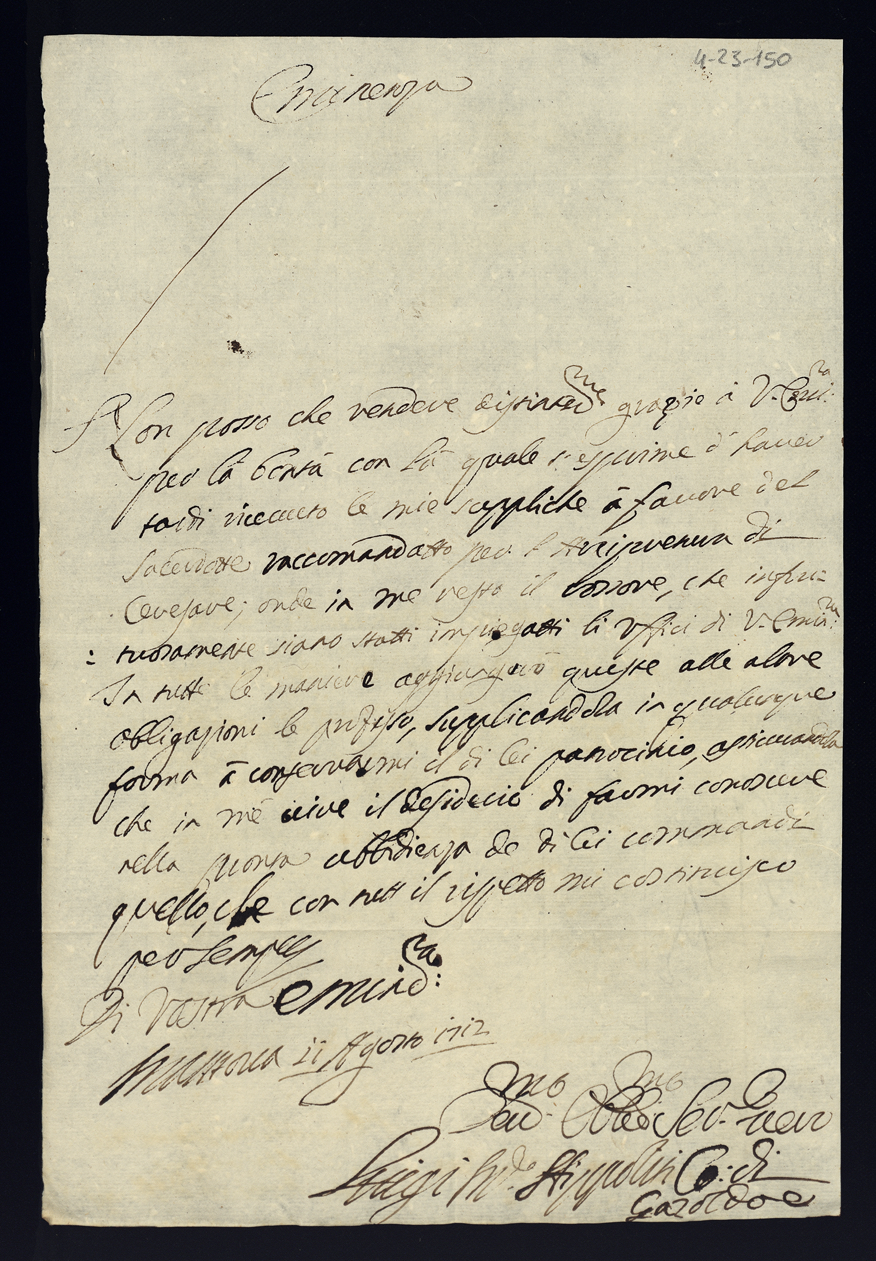 4-23-150
Eminenza
Non posso che rendere distintme grazie à V. Emi:za
per la bontà con la quale s'esprime d'haver
tardi riceuuto le mie suppliche à fauore del
Sacerdotte raccomandatto per l'Arcipretura di
Ceresare; onde in me resta il rossore, che infru=
: tuosamente siano statti impiegatti li Uffici di V. Emin:za
In tutte le maniere aggiungerò queste alle altre
obligazioni le professo, supplicandola in qualunque
forma à conseruarmi il di lei patrocinio, assicurandola
che in mè uiue il desiderio di farmi conoscere
nella pronta ubbidienza de di lei commandi
quello, che con tutt il rispetto mi costituisco
per sempre
Di Vostra Emind:za
Mantoua 11 Agosto 1712
Deu.mo Obb.mo Ser. uero
Luigi Hippoliti Co: di
Gazoldoe